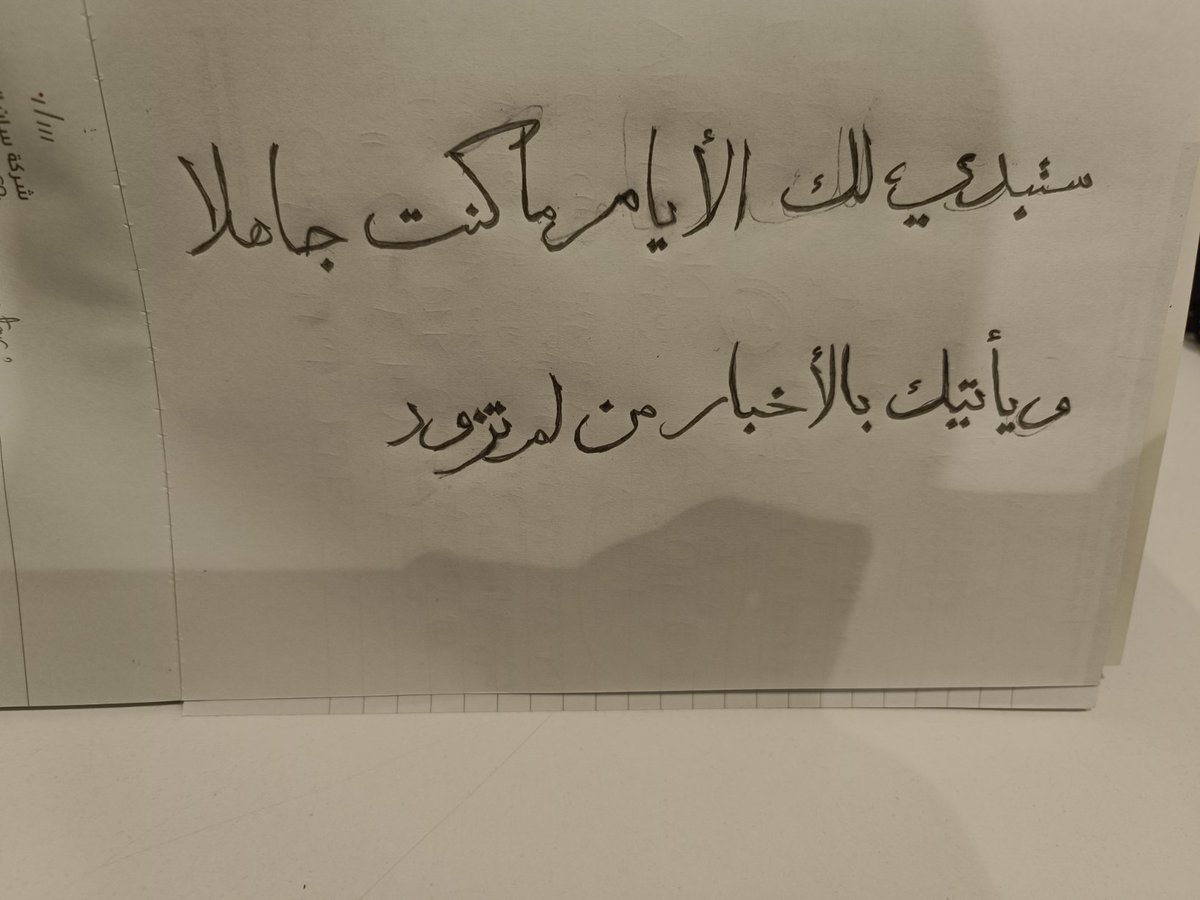 ستبدي لك الأيام ما كنت جاهلا
ويأتيك بالأخبار من لم تزود
شركة